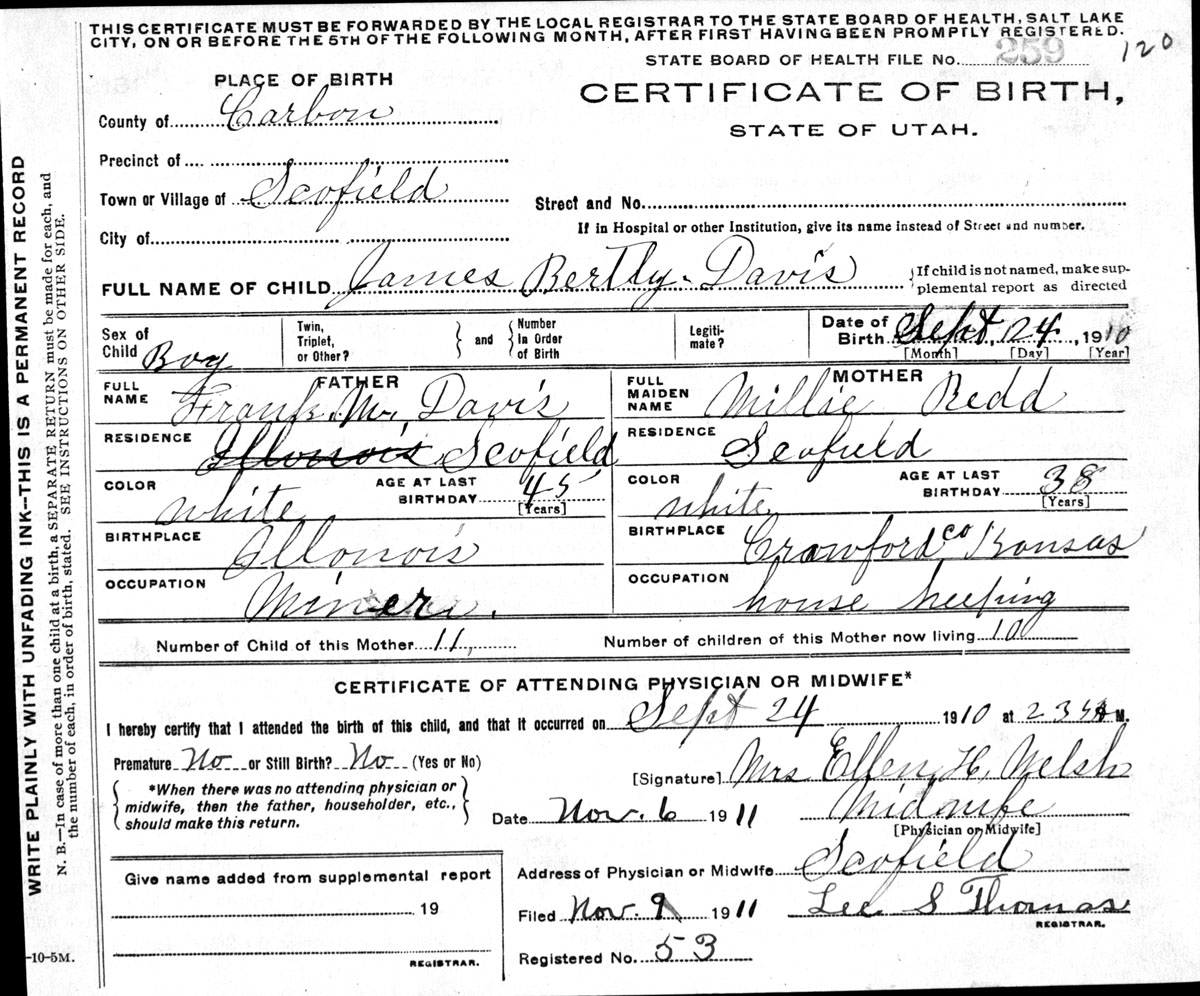 THIS CERTIFICATE MUST BE FORWARDED BY THE LOCAL REGISTRAR TO THE STATE BOARD OF HEALTH, SALT LAKE
CITY, ON OR BEFORE THE 5TH OF THE FOLLOWING MONTH, AFTER FIRST HAVING BEEN PROMPTLY REGISTERED.
STATE BOARD OF HEALTH FILE No. 259
120
PLACE OF BIRTH
CERTIFICATE OF BIRTH,
STATE OF UTAH.
County of Carbon
Precinct of
Town or Village of Scofield
Street and No.
If in Hospital or other Institution, give its name instead of Street and number.
City of
FULL NAME OF CHILD James Bertly Davis
If child is not named, make sup-
plemental report as directed
Sex of Child Boy
Twin, Triplet, or Other?
and
Number In Order of Birth
Legiti-mate?
Date of Birth Sept 24, 1910
[Month] [Day] [Year]
FATHER
FULL NAME Frank M. Davis
RESIDENCE Illonois Scofield
COLOR white
AGE AT LAST BIRTHDAY 45
[Years]
BIRTHPLACE Illonois
OCCUPATION Miner
MOTHER
FULL MAIDEN NAME Millie Redd
RESIDENCE Scofield
COLOR white
AGE AT LAST BIRTHDAY 38
[Years]
BIRTHPLACE Crawford co Kansas
OCCUPATION house keeping
Number of Child of this Mother 11,
Number of children of this Mother now living 10
CERTIFICATE OF ATTENDING PHYSICIAN OR MIDWIFE*
I hereby certify that I attended the birth of this child, and that it occurred on Sept 24 1910 at M.
Premature No or Still Birth? No (Yes or No)
*When there was no attending physician or
midwife, then the father, householder, etc.,
should make this return.
[Signature] Mrs Ellen H. Welsh
Date Nov. 6 1911 Midwife
[Physician or Midwife]
Give name added from supplemental report
19
REGISTRAR.
Address of Physician or Midwife Scofield
Filed Nov. 9 1911 Lee S Thomas
REGISTRAR.
Registered No. 53
WRITE PLAINLY WITH UNFADING INK—THIS IS A PERMANENT RECORD
N. B.—In case of more than one child at a birth, a SEPARATE RETURN must be made for each, and
the number of each, in order of birth, stated. SEE INSTRUCTIONS ON OTHER SIDE.
-10-5M.